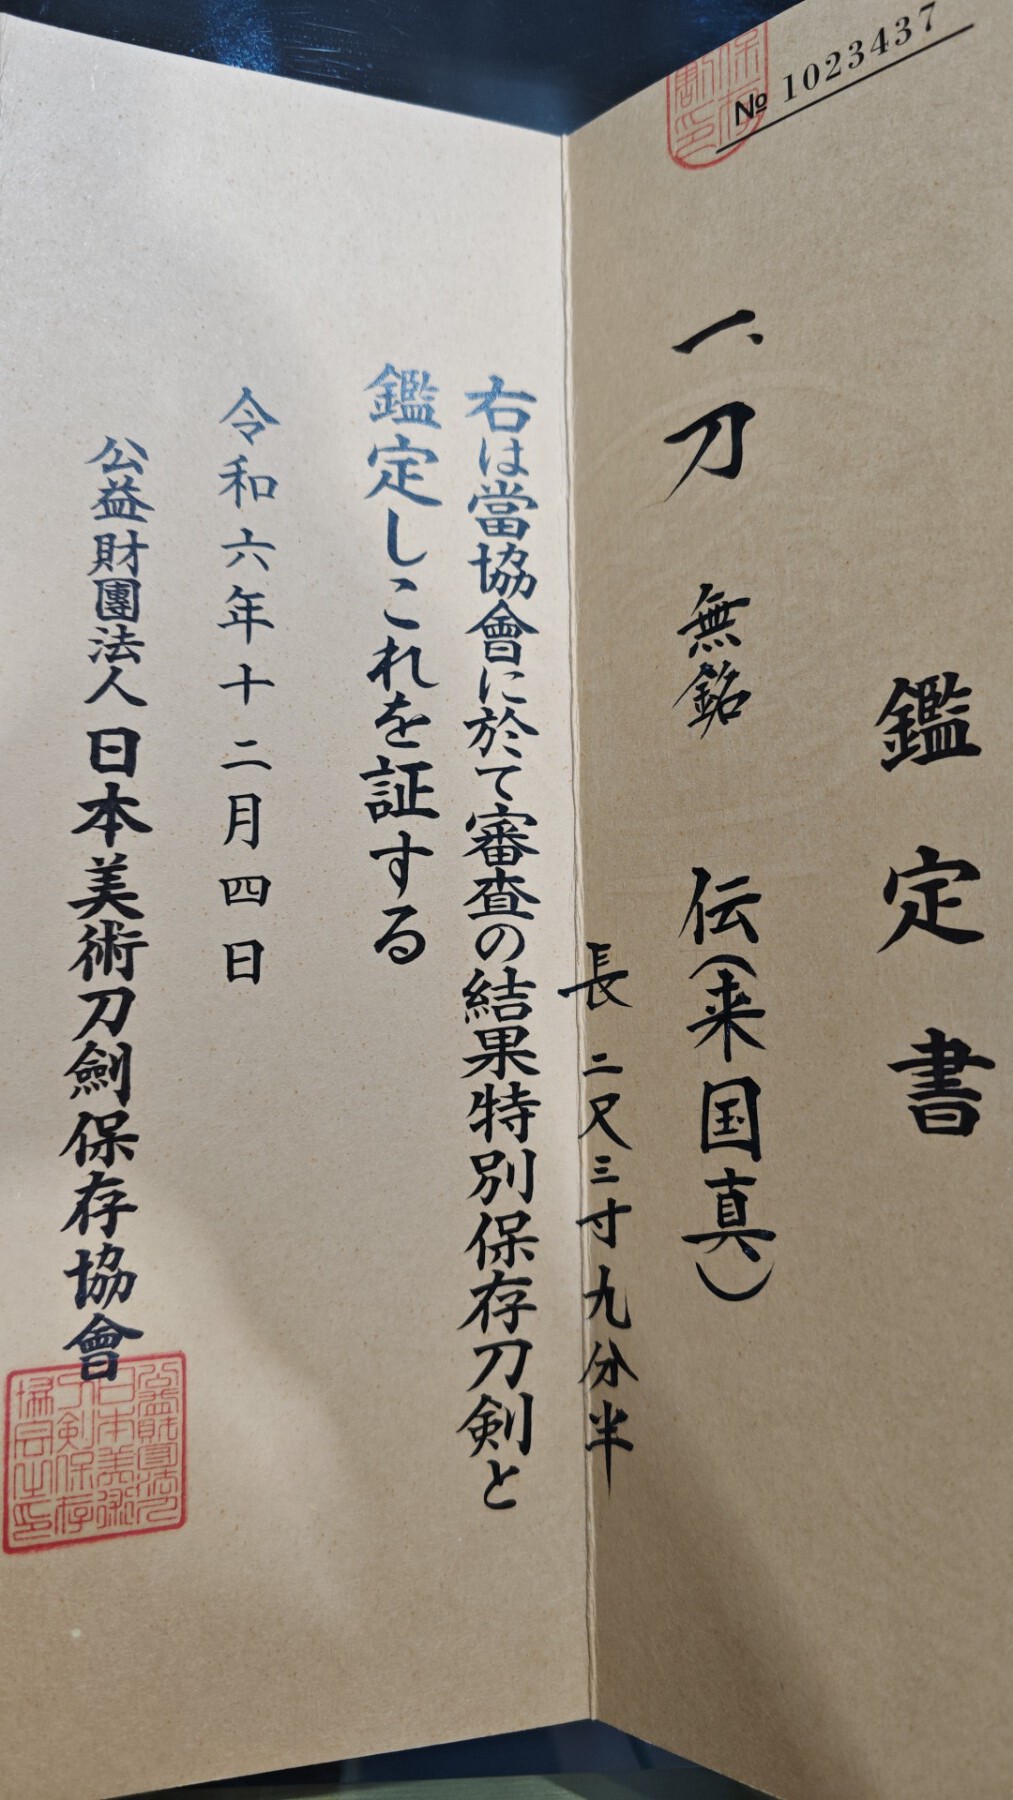 № 1023437
鑑定書
一、刀 無銘 伝(来国真)
長 二尺三寸九分半
右は當協會に於て審査の結果特別保存刀剣と
鑑定しこれを証する
令和六年十二月四日
公益財團法人 日本美術刀劍保存協會